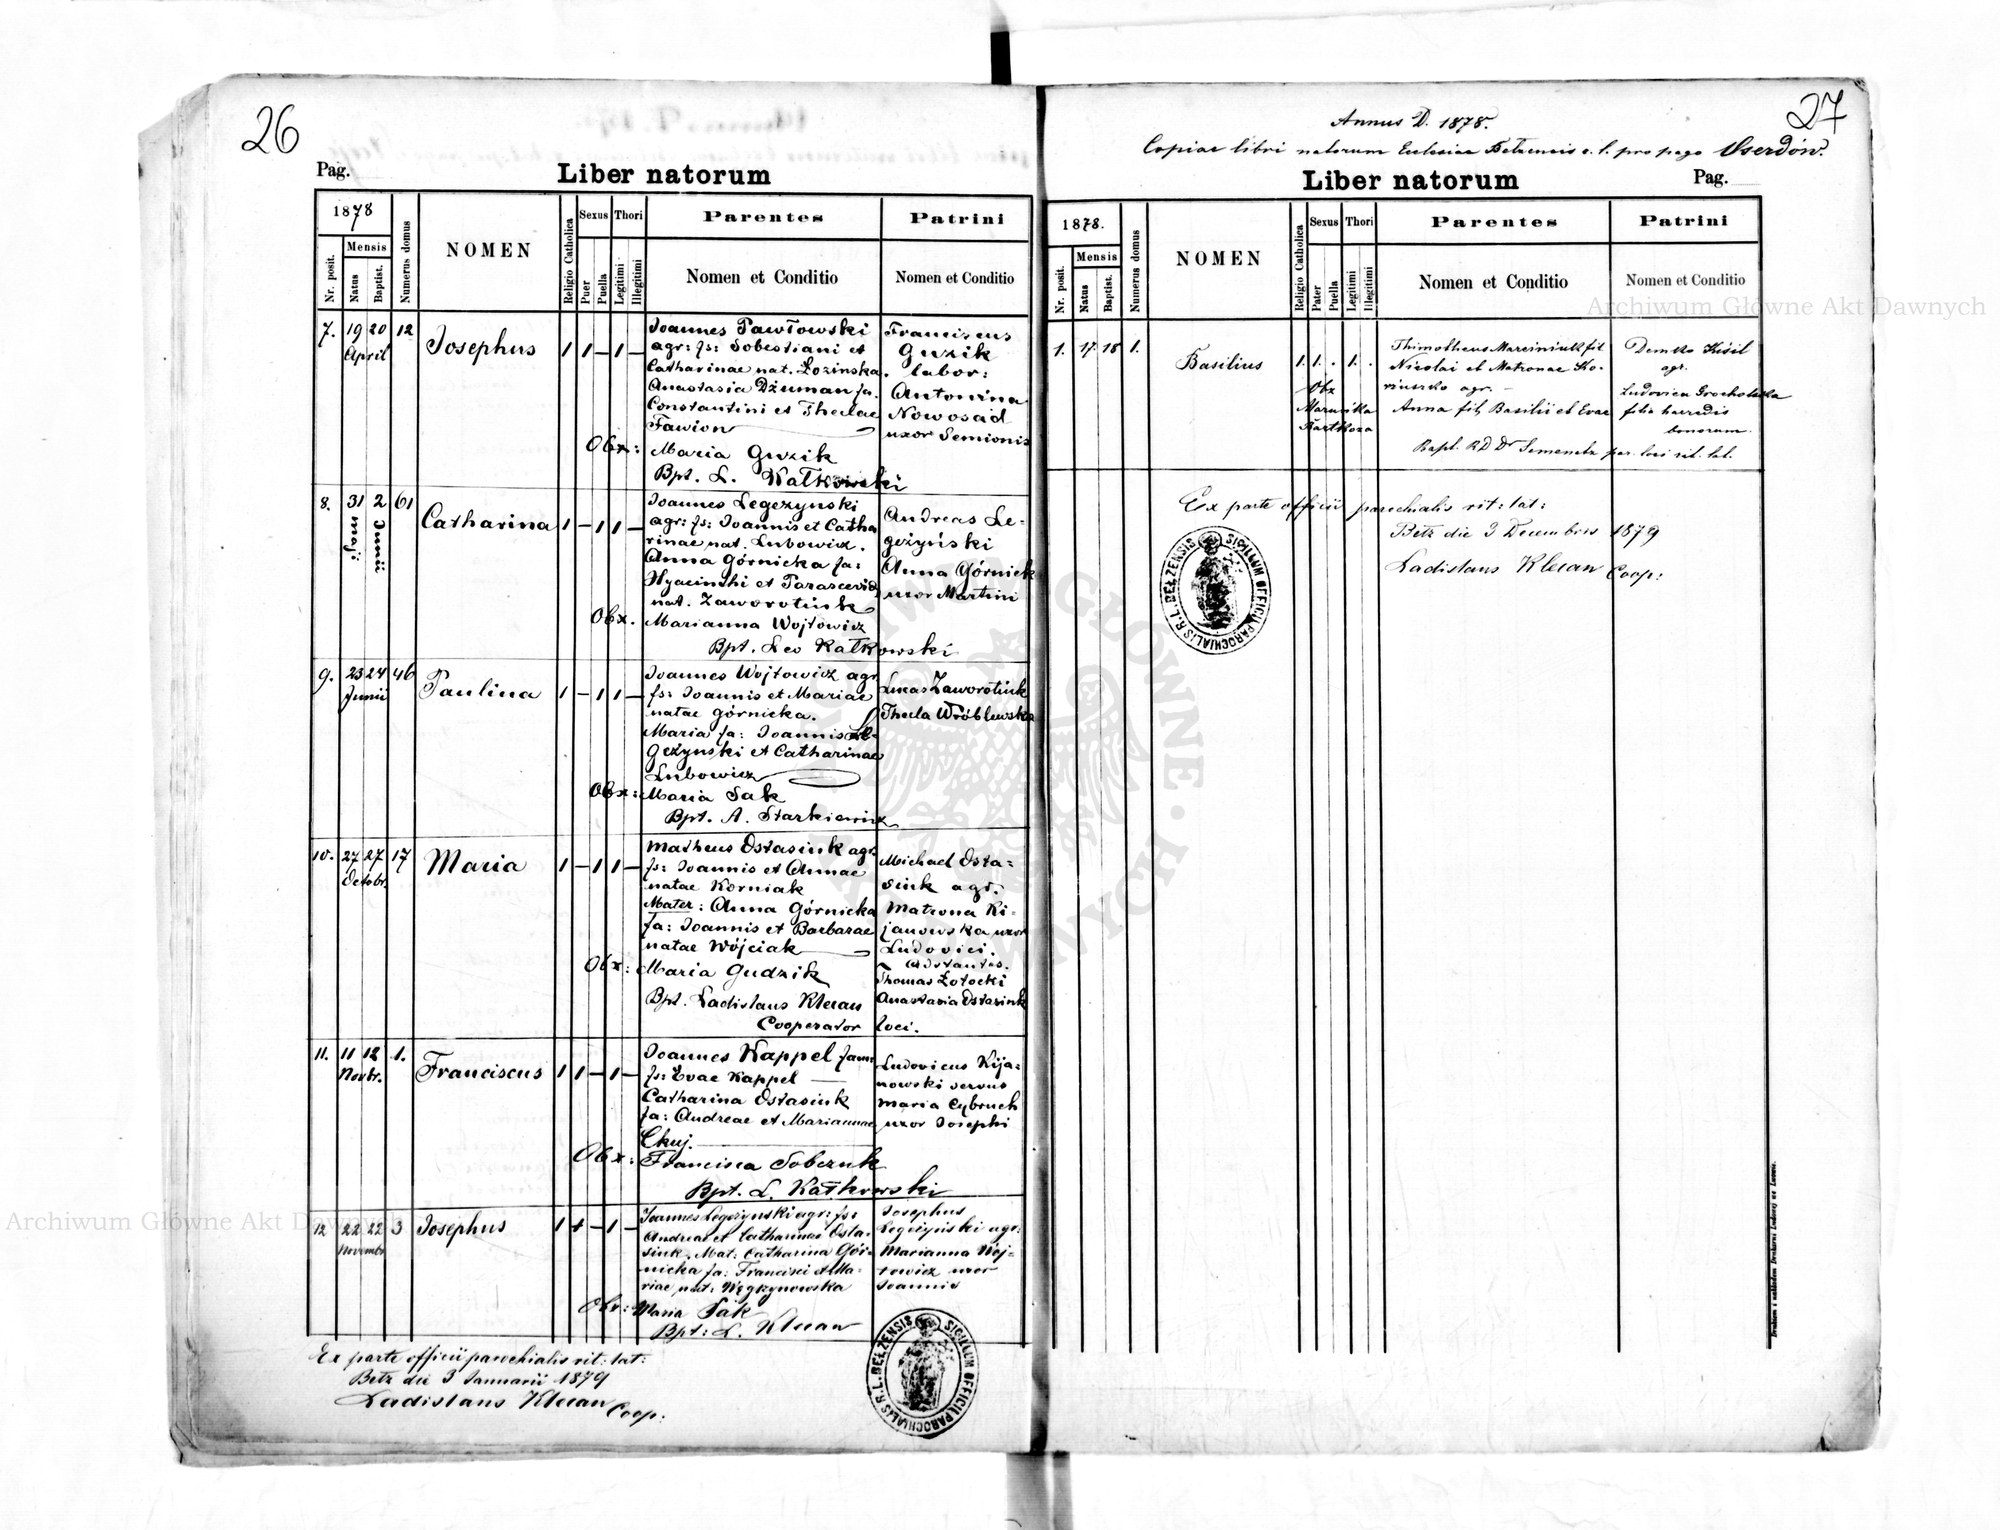 26
Pag.
Liber natorum
1878
Nr. posit.
Mensis
Natus
Baptist.
Numerus domus
NOMEN
Religio Catholica
Sexus
Puer
Puella
Thori
Legitimi
Illegitimi
Parentes
Nomen et Conditio
Patrini
Nomen et Conditio
7. 19 20 12
April
Josephus
1 1 – 1 –
Joannes Pawłowski
agr: fs: Sebestiani et
Catharinae nat. Łozinska.
Anastasia Dżuman fa.
Constantini et Theclae
Fawion
Obx: Maria Guzik
Bpt. L. Kałkowski
Franciscus
Guzik
labor:
Antonina
Nowosad
uxor Semionis
8. 31 2 61
Maji Junii
Catharina
1 – 1 1 –
Joannes Legezynski
agr: fs: Joannis et Catha
rinae nat. Lubowicz.
Anna Górnicka fa:
Hyacinthi et Parascevid
nat. Zaworotiuk
Obx. Marianna Wojtowicz
Bpt. Leo Kałkowski
Andreas Le-
geżyński
Anna Górnick
uxor Martini
9. 23 24 46
Junii
Paulina
1 – 1 1 –
Joannes Wojtowicz agr
fs: Joannis et Mariae
natae górnicka.
Maria fa: Joannis Le-
gezynski et Catharinae
Lubowicz
Obx: Maria Sak
Bpt. A. Starkiewicz
Lucas Zaworotiuk
Thecla Wróblewska
10. 27 27 17
Octobr.
Maria
1 – 1 1 –
Matheus Ostasiuk agr.
fs: Joannis et Annae
natae Korniak
Mater: Anna Górnicka
fa: Joannis et Barbarae
natae Wójciak
Obx: Maria Gudzik
Bpt. Ladislaus Klecan
Cooperator loci.
Michael Osta=
siuk agr.
Matrona Ki-
janowska uxor
Ludovici.
Adstantes.
Thomas Łotocki
Anastasia Ostasiuk
11. 11 12 1.
Novbr.
Franciscus
1 1 – 1 –
Joannes Kappel fam:
fs: Evae Kappel
Catharina Ostasiuk
fa: Andreae et Mariannae
Ckuj.
Obx: Francisca Sobczuk
Bpt. L. Kałkowski
Ludovicus Kija-
nowski servus
Maria Cybruch
uxor Josephi
12 22 22 3
Novembr
Josephus
1 1 – 1 –
Joannes Legezynski agr: fs:
Andreae et Catharinae Osta-
siuk. Mat: Catharina Gór-
nicka fa: Francisci et Ma-
riae nat: Węgrzynowska
Obx: Maria Sak
Bpt: L. Klecan
Josephus
Legeżyński agr:
Marianna Woj-
towicz uxor
Joannis
Ex parte officii parochialis rit: lat:
Bełz die 3 Januarii 1879
Ladislaus Klecan
Coop:
SIGILLUM OFFICII PAROCHIALIS R. L. BEŁZENSIS
27
Annus D. 1878.
Copiae libri natorum Eclesiae Bełzensis r. l. pro pago Userdów.
Liber natorum
Pag.
1878.
Nr. posit.
Mensis
Natus
Baptist.
Numerus domus
NOMEN
Religio Catholica
Sexus
Pater
Puella
Thori
Legitimi
Illegitimi
Parentes
Nomen et Conditio
Patrini
Nomen et Conditio
1. 17. 18 1.
Basilius
1. 1. . 1. .
Obx
Bartkoza
Thimotheus Marciniuk fil
Nicolai et Matronae Ko-
agr. –
Anna fil. Basilii et Evae
Bapt. RD Dr Semenetz par. loci rit. lat.
Demko Kisil
agr.
Ludovica Grocholska
filia haeredis
bonorum.
Ex parte officii parochialis rit: lat:
Bełz die 3 Decembris 1879
Ladislaus Klecan Coop:
SIGILLUM OFFICII PAROCHIALIS R. L. BEŁZENSIS
Drukiem i nakładem Drukarni Ludowej we Lwowie.
Archiwum Główne Akt Dawnych
Archiwum Główne Akt Dawnych
ARCHIWUM GŁÓWNE AKT DAWNYCH